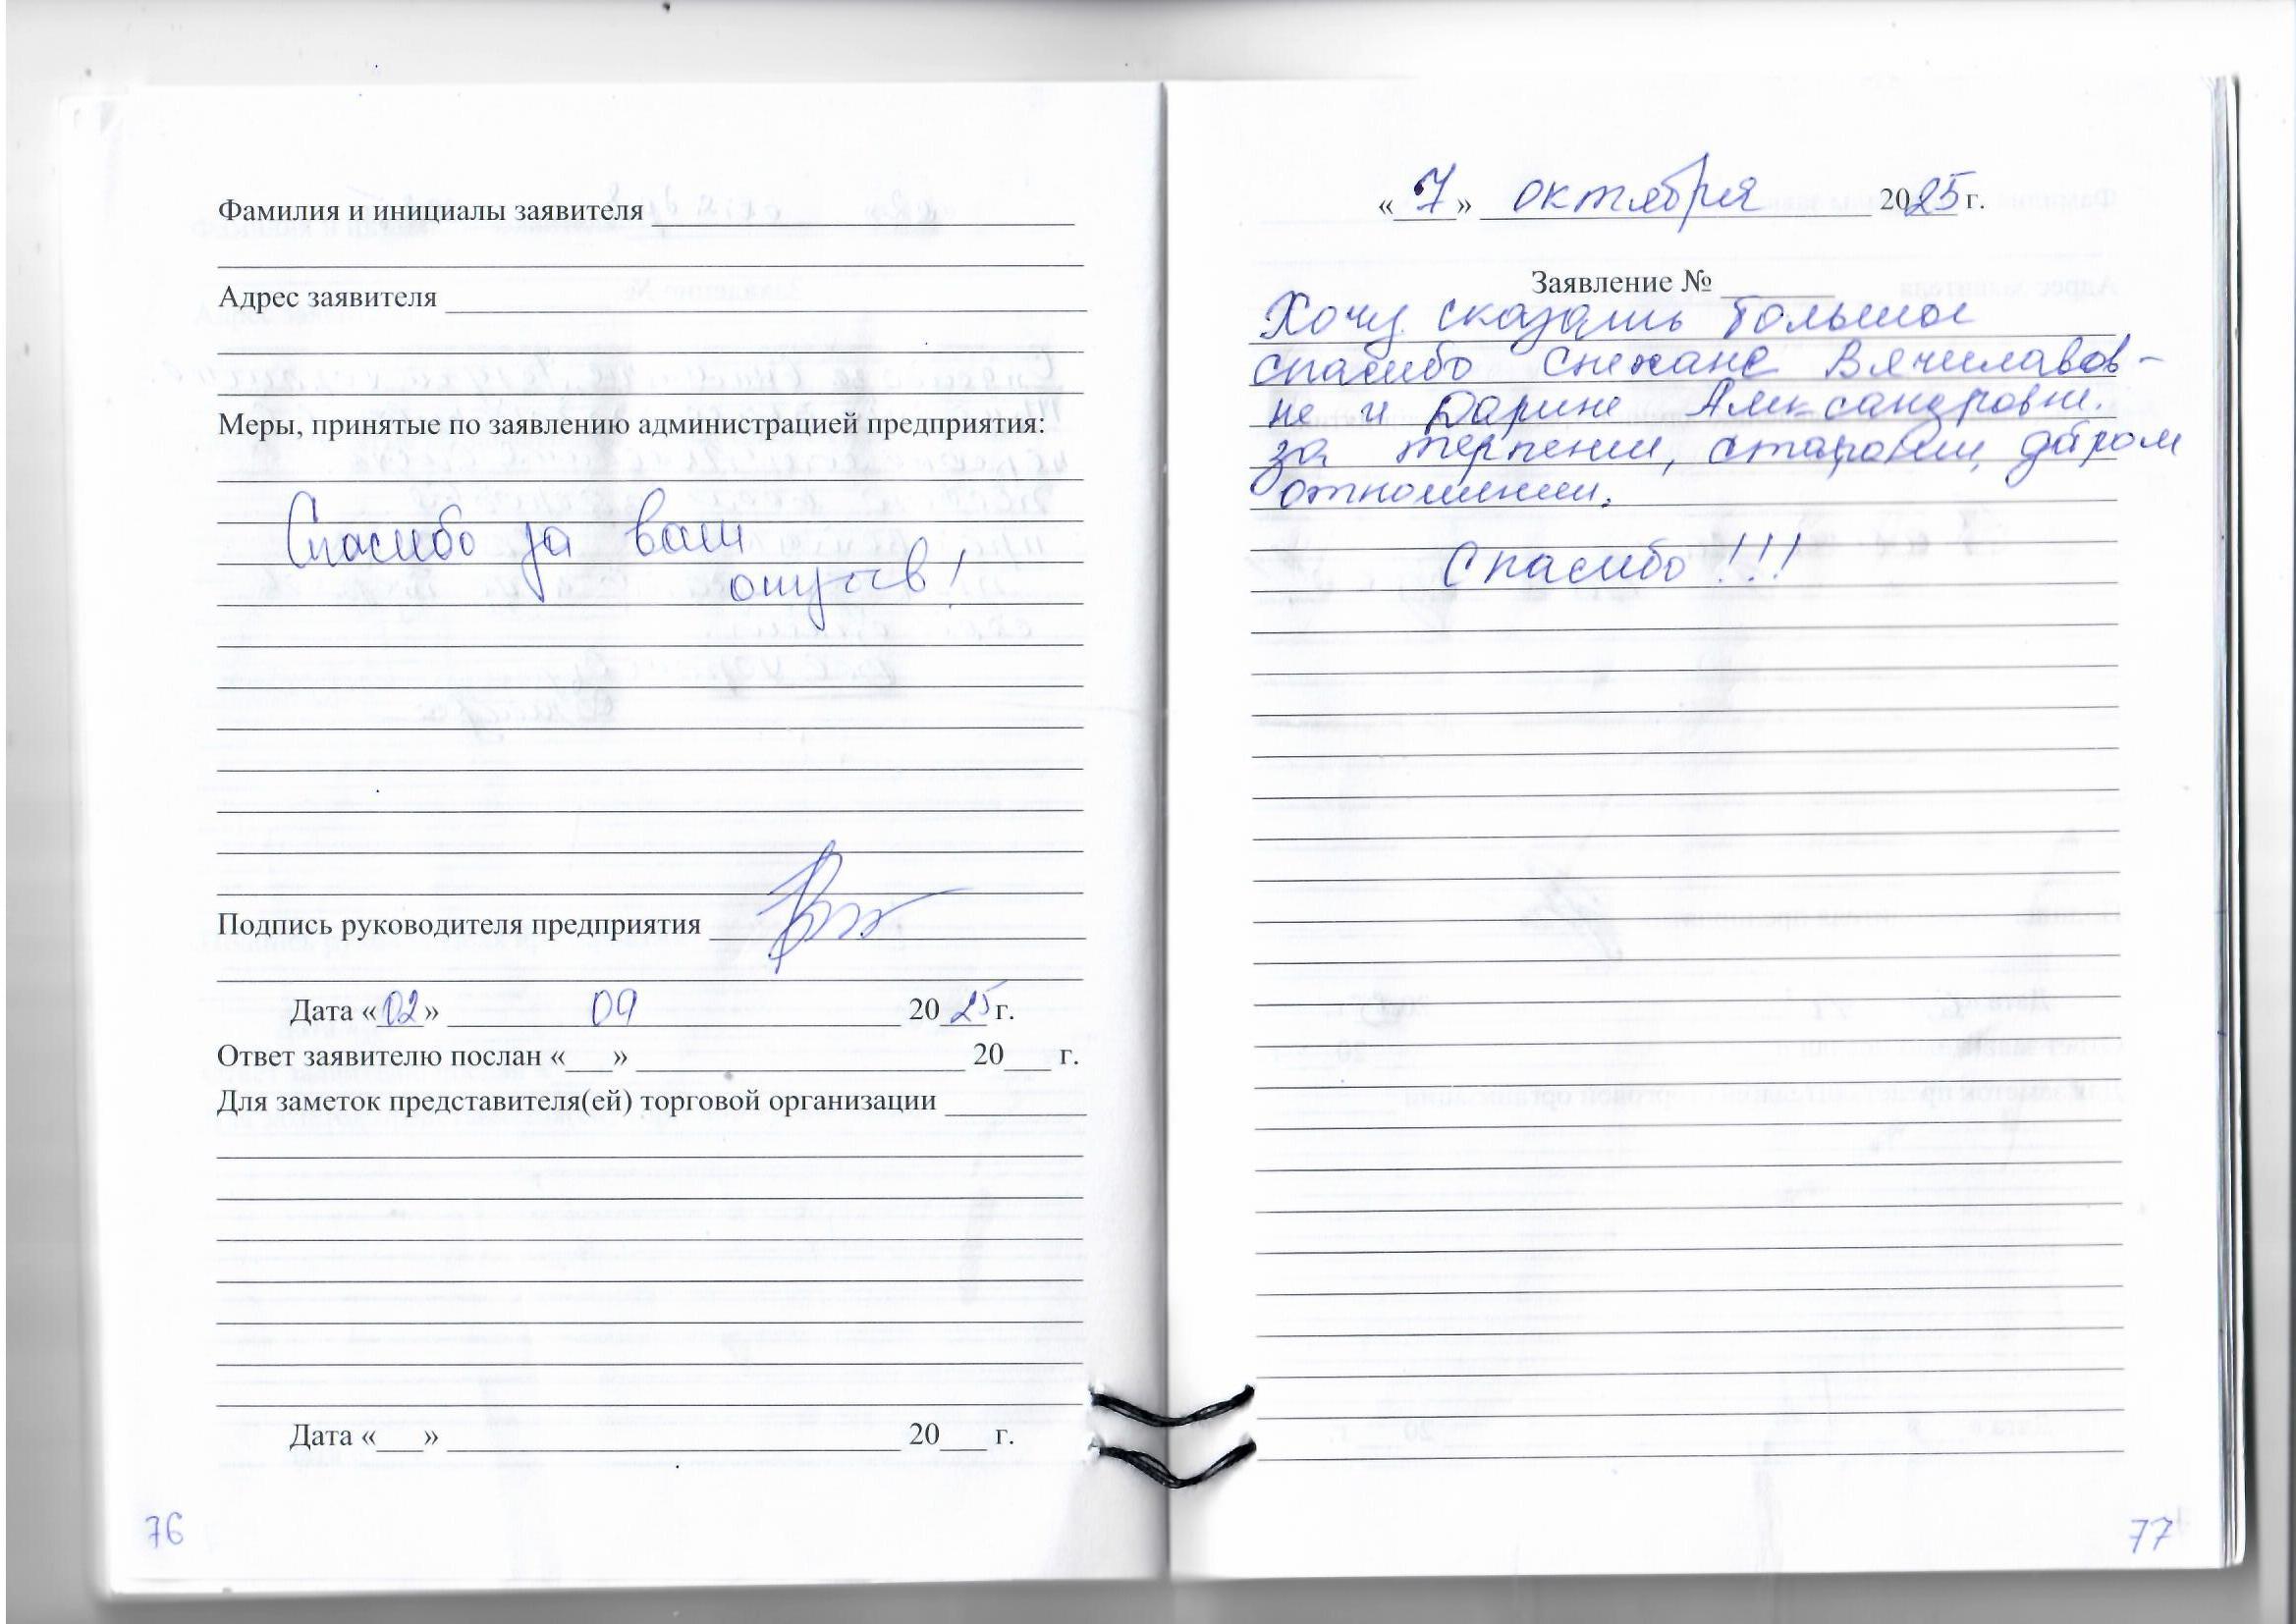 Фамилия и инициалы заявителя
Адрес заявителя
Меры, принятые по заявлению администрацией предприятия:
Спасибо за ваш
отзыв!
Подпись руководителя предприятия
Дата «02» 09 2025 г.
Ответ заявителю послан «___» 20___ г.
Для заметок представителя(ей) торговой организации
Дата «___» 20___ г.
76
«7» октября 2025 г.
Заявление №
Хочу сказать большое
спасибо Снежане Вячиславов-
не и Дарине Александровне.
за терпении, старании,
отношении.
Спасибо!!!
77